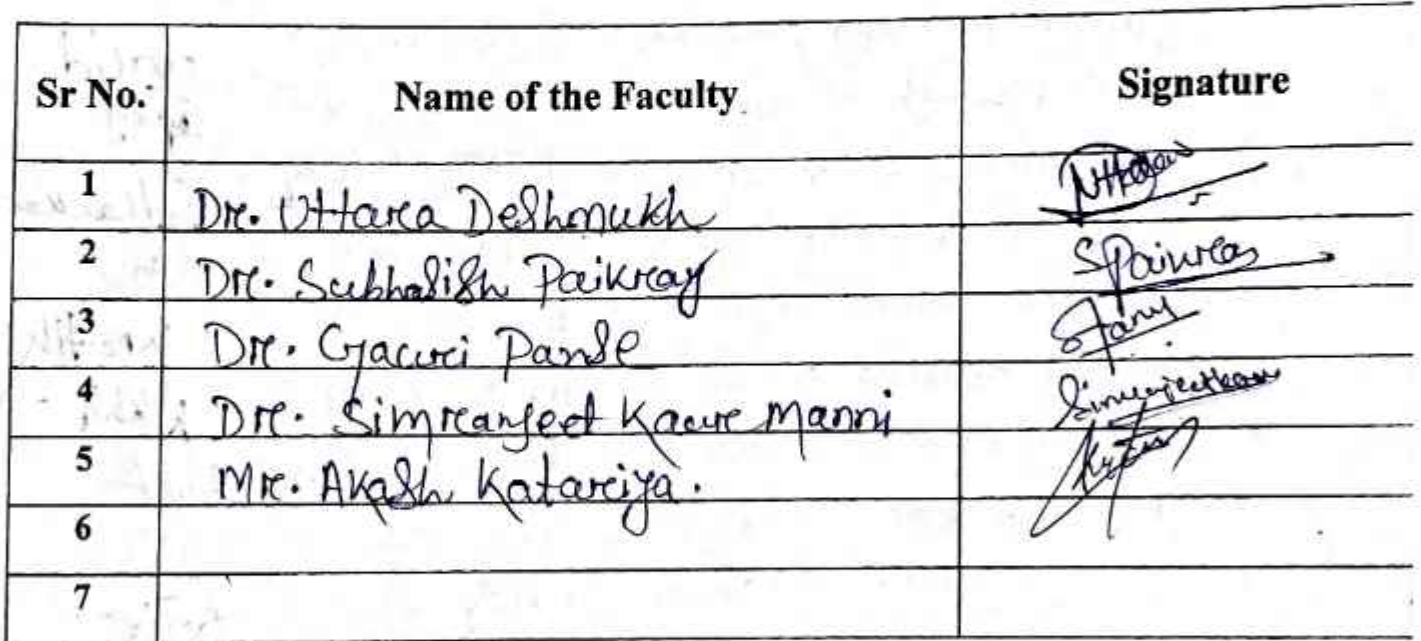 Sr No. Name of the Faculty Signature
1 Dr. Uttara Deshmukh
2 Dr. Subhasish Paikray SPaikray
3 Dr. Gauri Panse
4 Dr. Simranjeet Kaur Manni Simranjeetkaur
5 Mr. Akash Katariya.
6
7